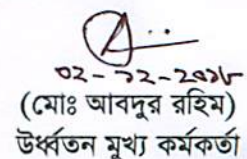 ০২-১২-২০১৮
(মোঃ আবদুর রহিম)
উর্ধ্বতন মুখ্য কর্মকর্তা